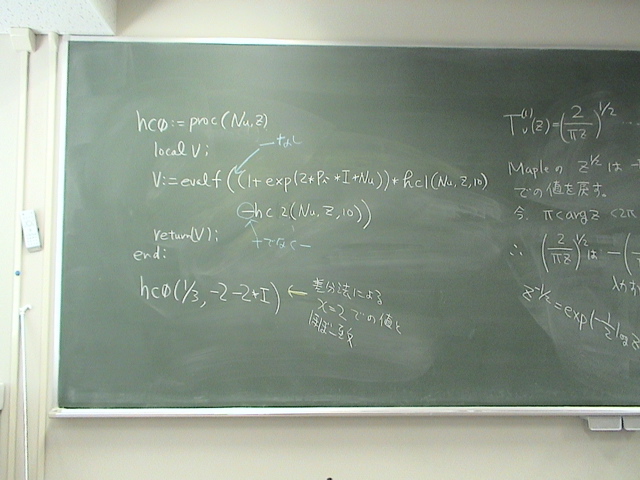 hc0:=proc(Nu,Z)
local V;
←なし
V:=evalf((1+exp(2*Pi*I*Nu))*hc1(Nu,Z,10)
-hc2(Nu,Z,10))
+でなく-
return(V);
end:
hc0(1/3,-2-2*I) ← 差分法による
x=2での値と
ほぼ一致
T_ν^{(1)}(Z)=(2/πZ)^{1/2} ...
Mapleの Z^{1/2} は -
での値を戻す。
今, π<argZ<2π
∴ (2/πZ)^{1/2} は -(
Z^{-1/2}=exp(-1/2 log Z